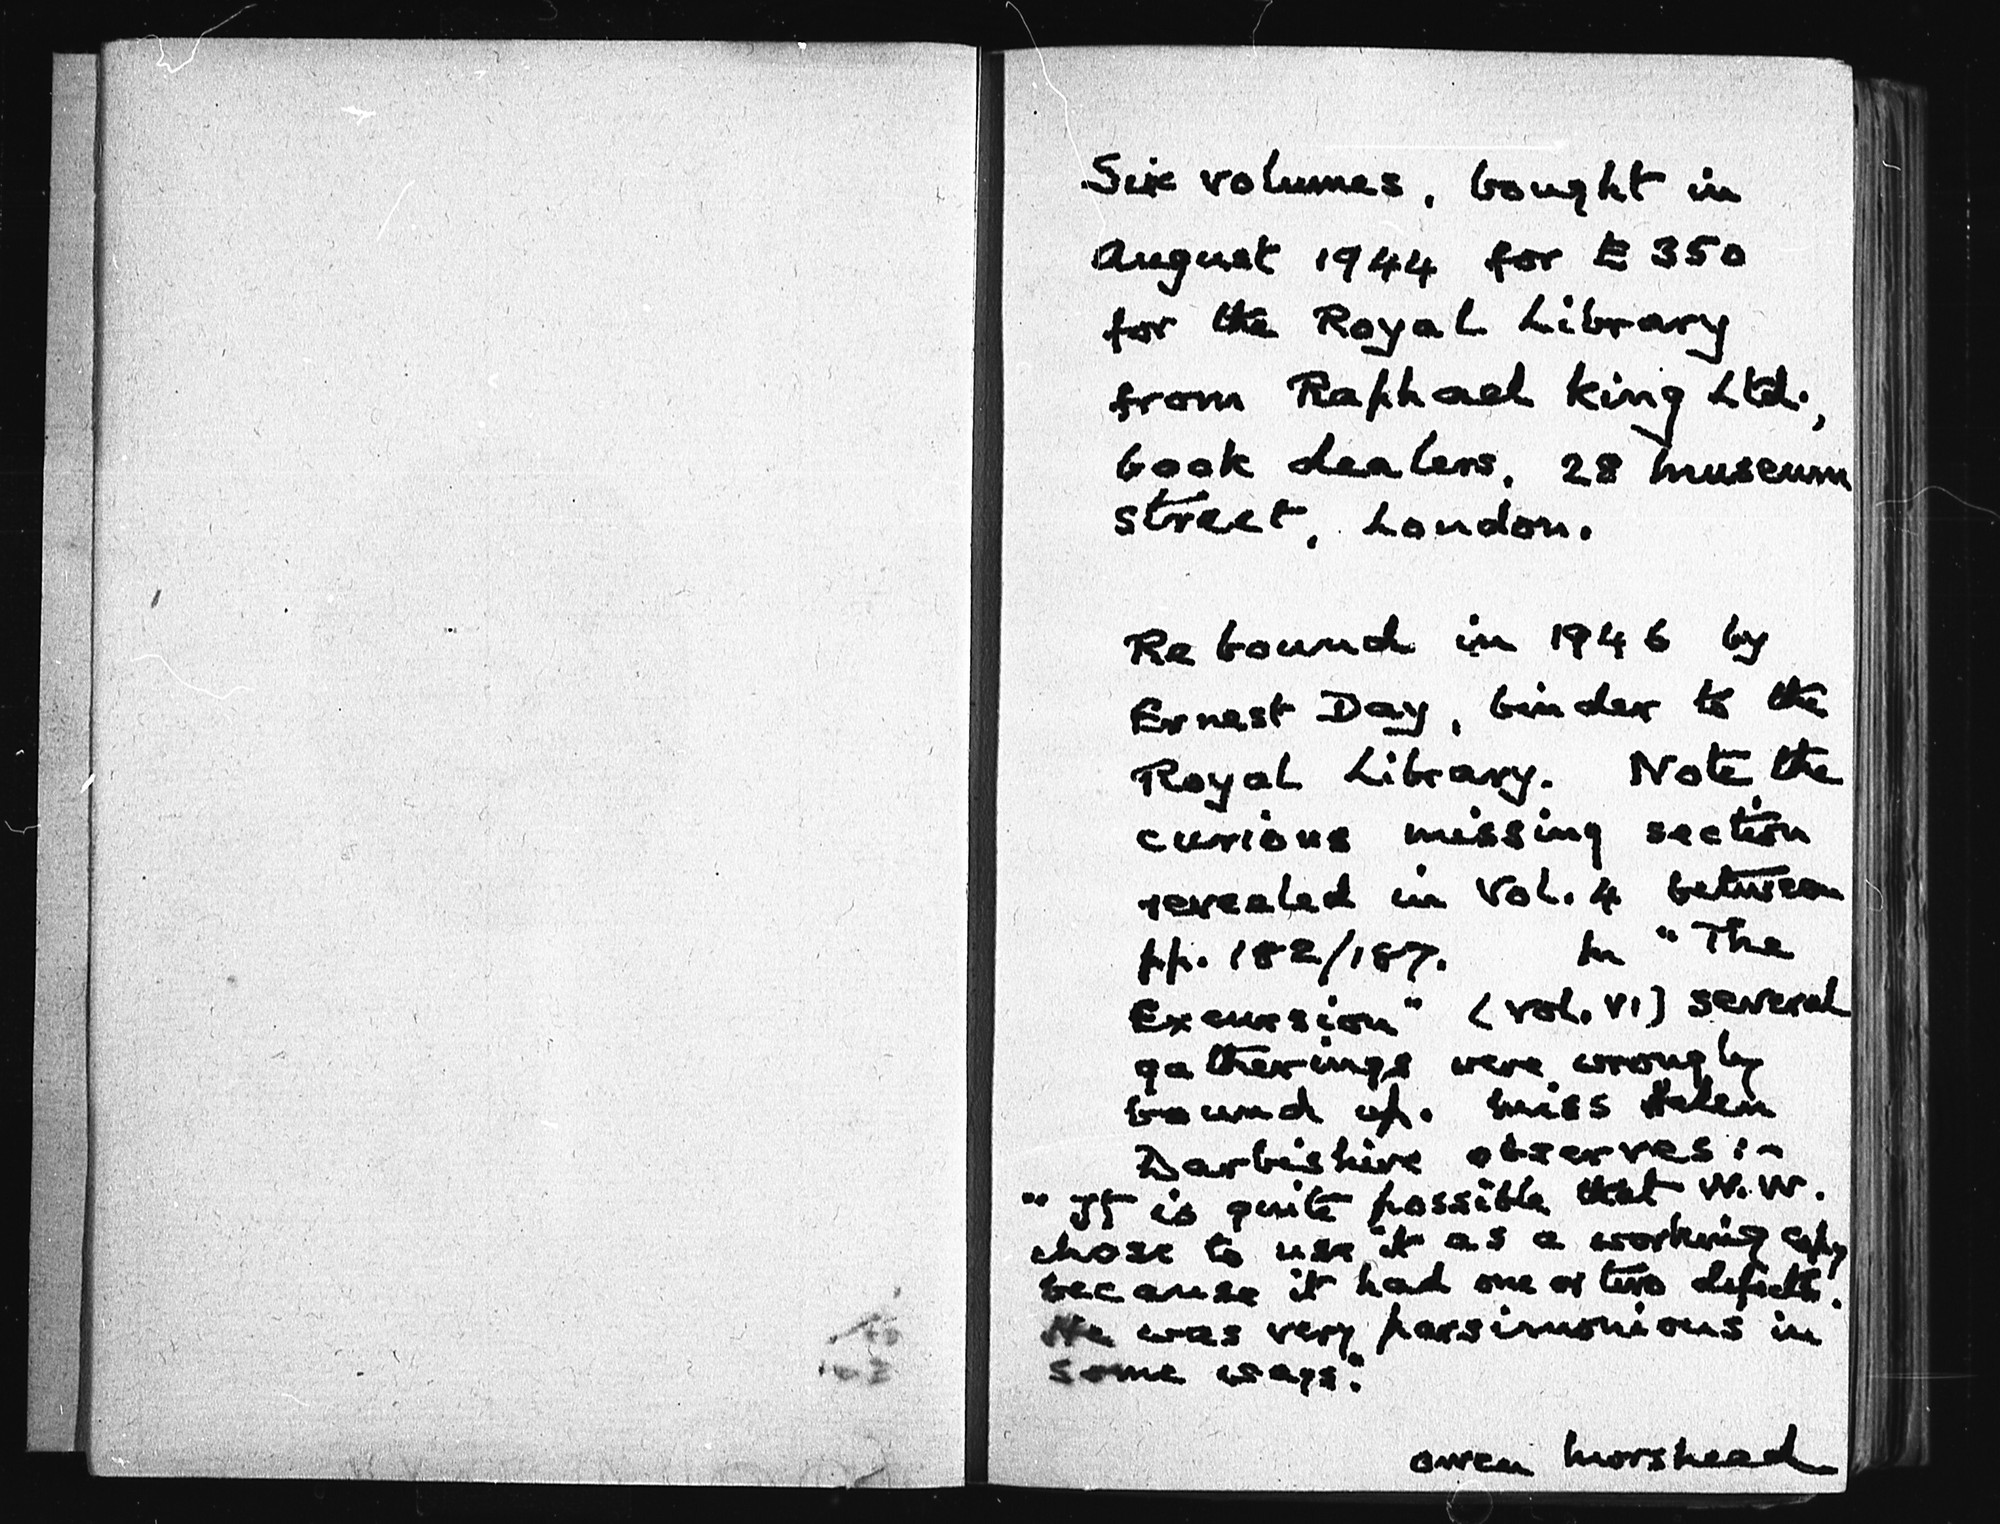 Six volumes, bought in
August 1944 for £350
for the Royal Library
from Raphael King Ltd.,
book dealers, 28 Museum
Street, London.
Rebound in 1946 by
Ernest Day, binder to the
Royal Library. Note the
curious missing section
revealed in Vol. 4 between
pp. 182/187. In "The
Excursion" (Vol. VI) several
gatherings were wrongly
bound up. Miss Helen
Darbishire observes :-
"It is quite possible that W.W.
chose to use it as a working copy
because it had one or two defects.
He was very parsimonious in
some ways".
Owen Morshead